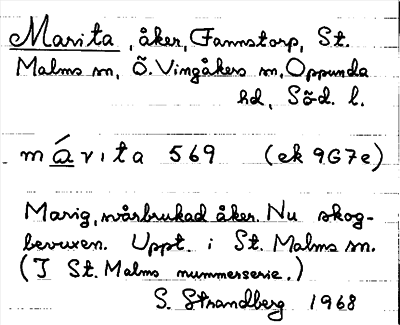 Marita, åker, Fannstorp, St.
Malms sn, Ö. Vingåkers sn, Oppunda
hd, Söd. l.
má̱vıta 569 (ek 9G7e)
Marig, svårbrukad åker. Nu skog-
bevuxen. Uppt. i St. Malms sn.
(I St. Malms nummerserie.)
S. Strandberg 1968